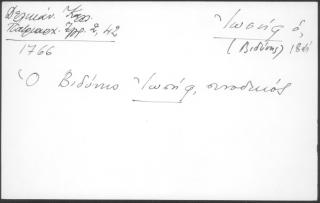 Δελικάν. Κωδ.
Πατριαρχ. Ἐγγρ. 2, 42
1766
Ἰωσήφ ὁ,
(Βιδύνης)
Ὁ Βιδύνης Ἰωσήφ, συνοδικός